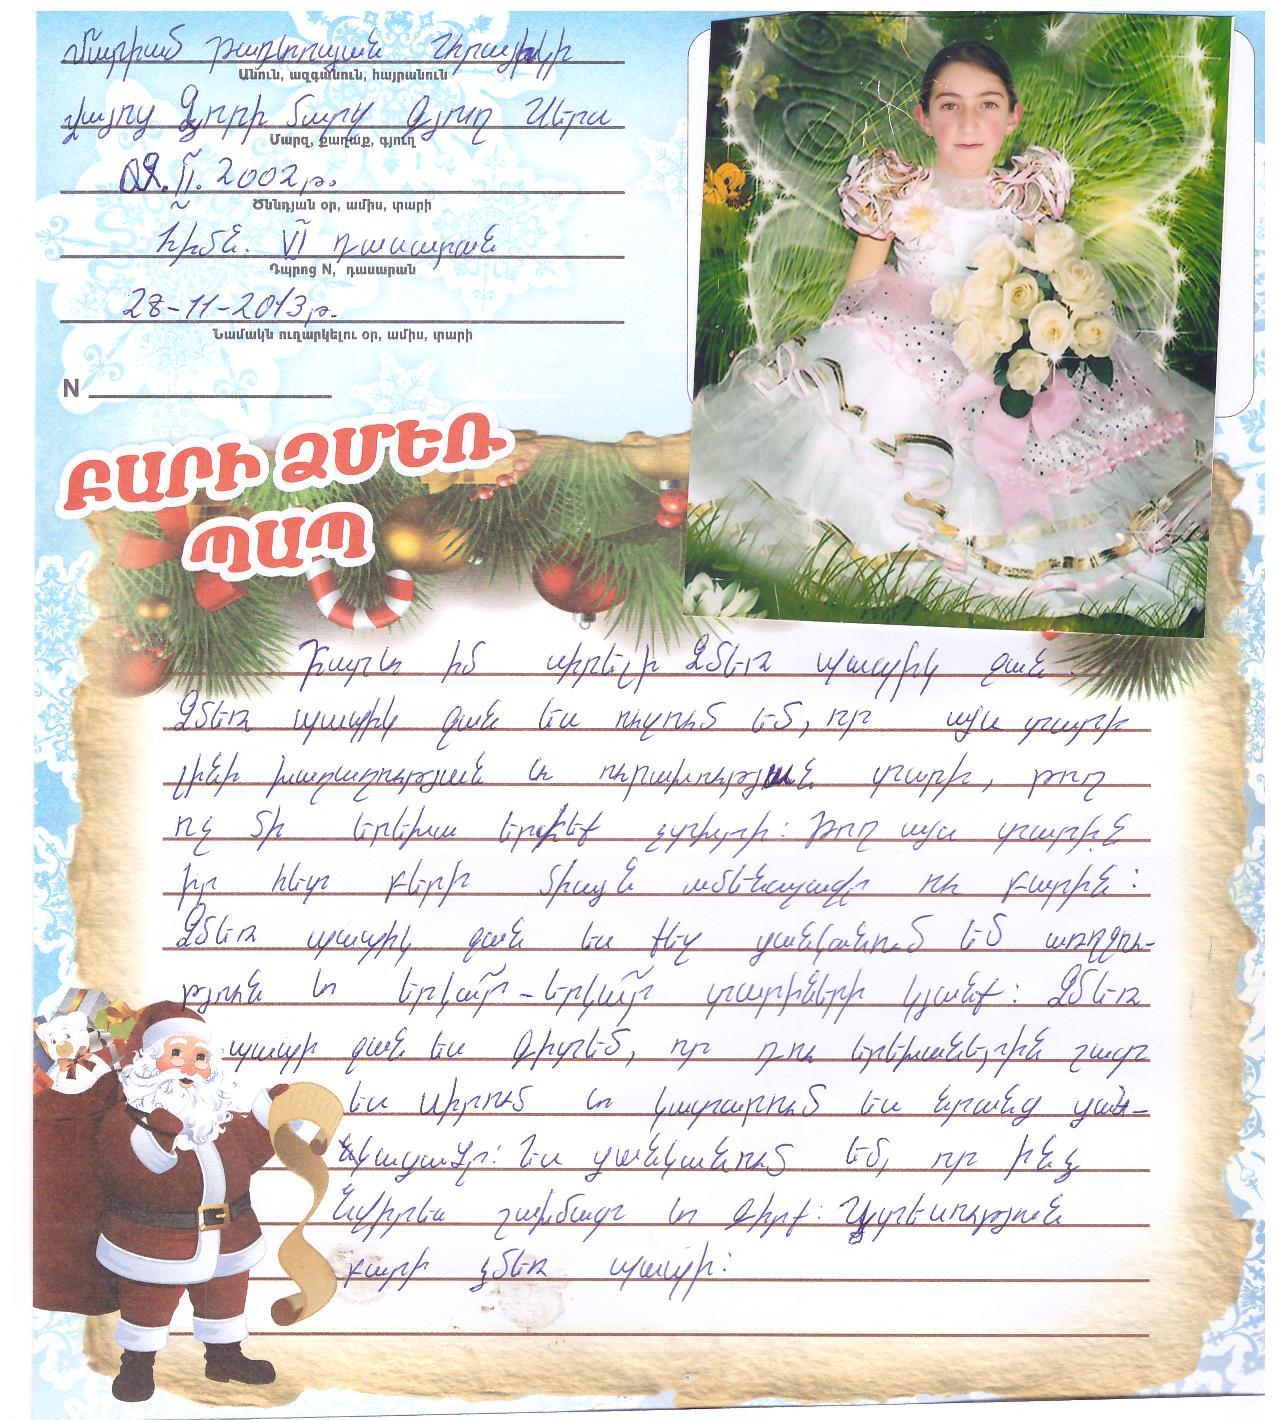 Մարիամ Թադևոսյան Հրայրի
Անուն, ազգանուն, հայրանուն
Վայոց Ձորի մարզ Գյուղ Ալերս
Մարզ, քաղաք, գյուղ
02. II. 2002թ.
Ծննդյան օր, ամիս, տարի
հիմն. VI դասարան
Դպրոց N, դասարան
28-11-2013թ.
Նամակն ուղարկելու օր, ամիս, տարի
N
ԲԱՐԻ ՁՄԵՌ
ՊԱՊ
Բարև իմ սիրելի Ձմեռ պապիկ ջան:
Ձմեռ պապիկ ջան ես ուզում եմ, որ այս տարի
լինի խաղաղության և ուրախության տարի, թող
ոչ մի երեխա երբեք չտխրի: Թող այս տարին
իր հետ բերի միայն ամենալավը ու բարին:
Ձմեռ պապիկ ջան ես քեզ ցանկանում եմ առողջու-
թյուն և երկա՜ր-երկա՜ր տարիների կյանք: Ձմեռ
պապի ջան ես գիտեմ, որ դու երեխաներին շատ
ես սիրում և կատարում ես նրանց ցան-
կացածը: Ես ցանկանում եմ, որ ինձ
նվիրես շախմատ և գիրք: Ցտեսություն
բարի ձմեռ պապի: